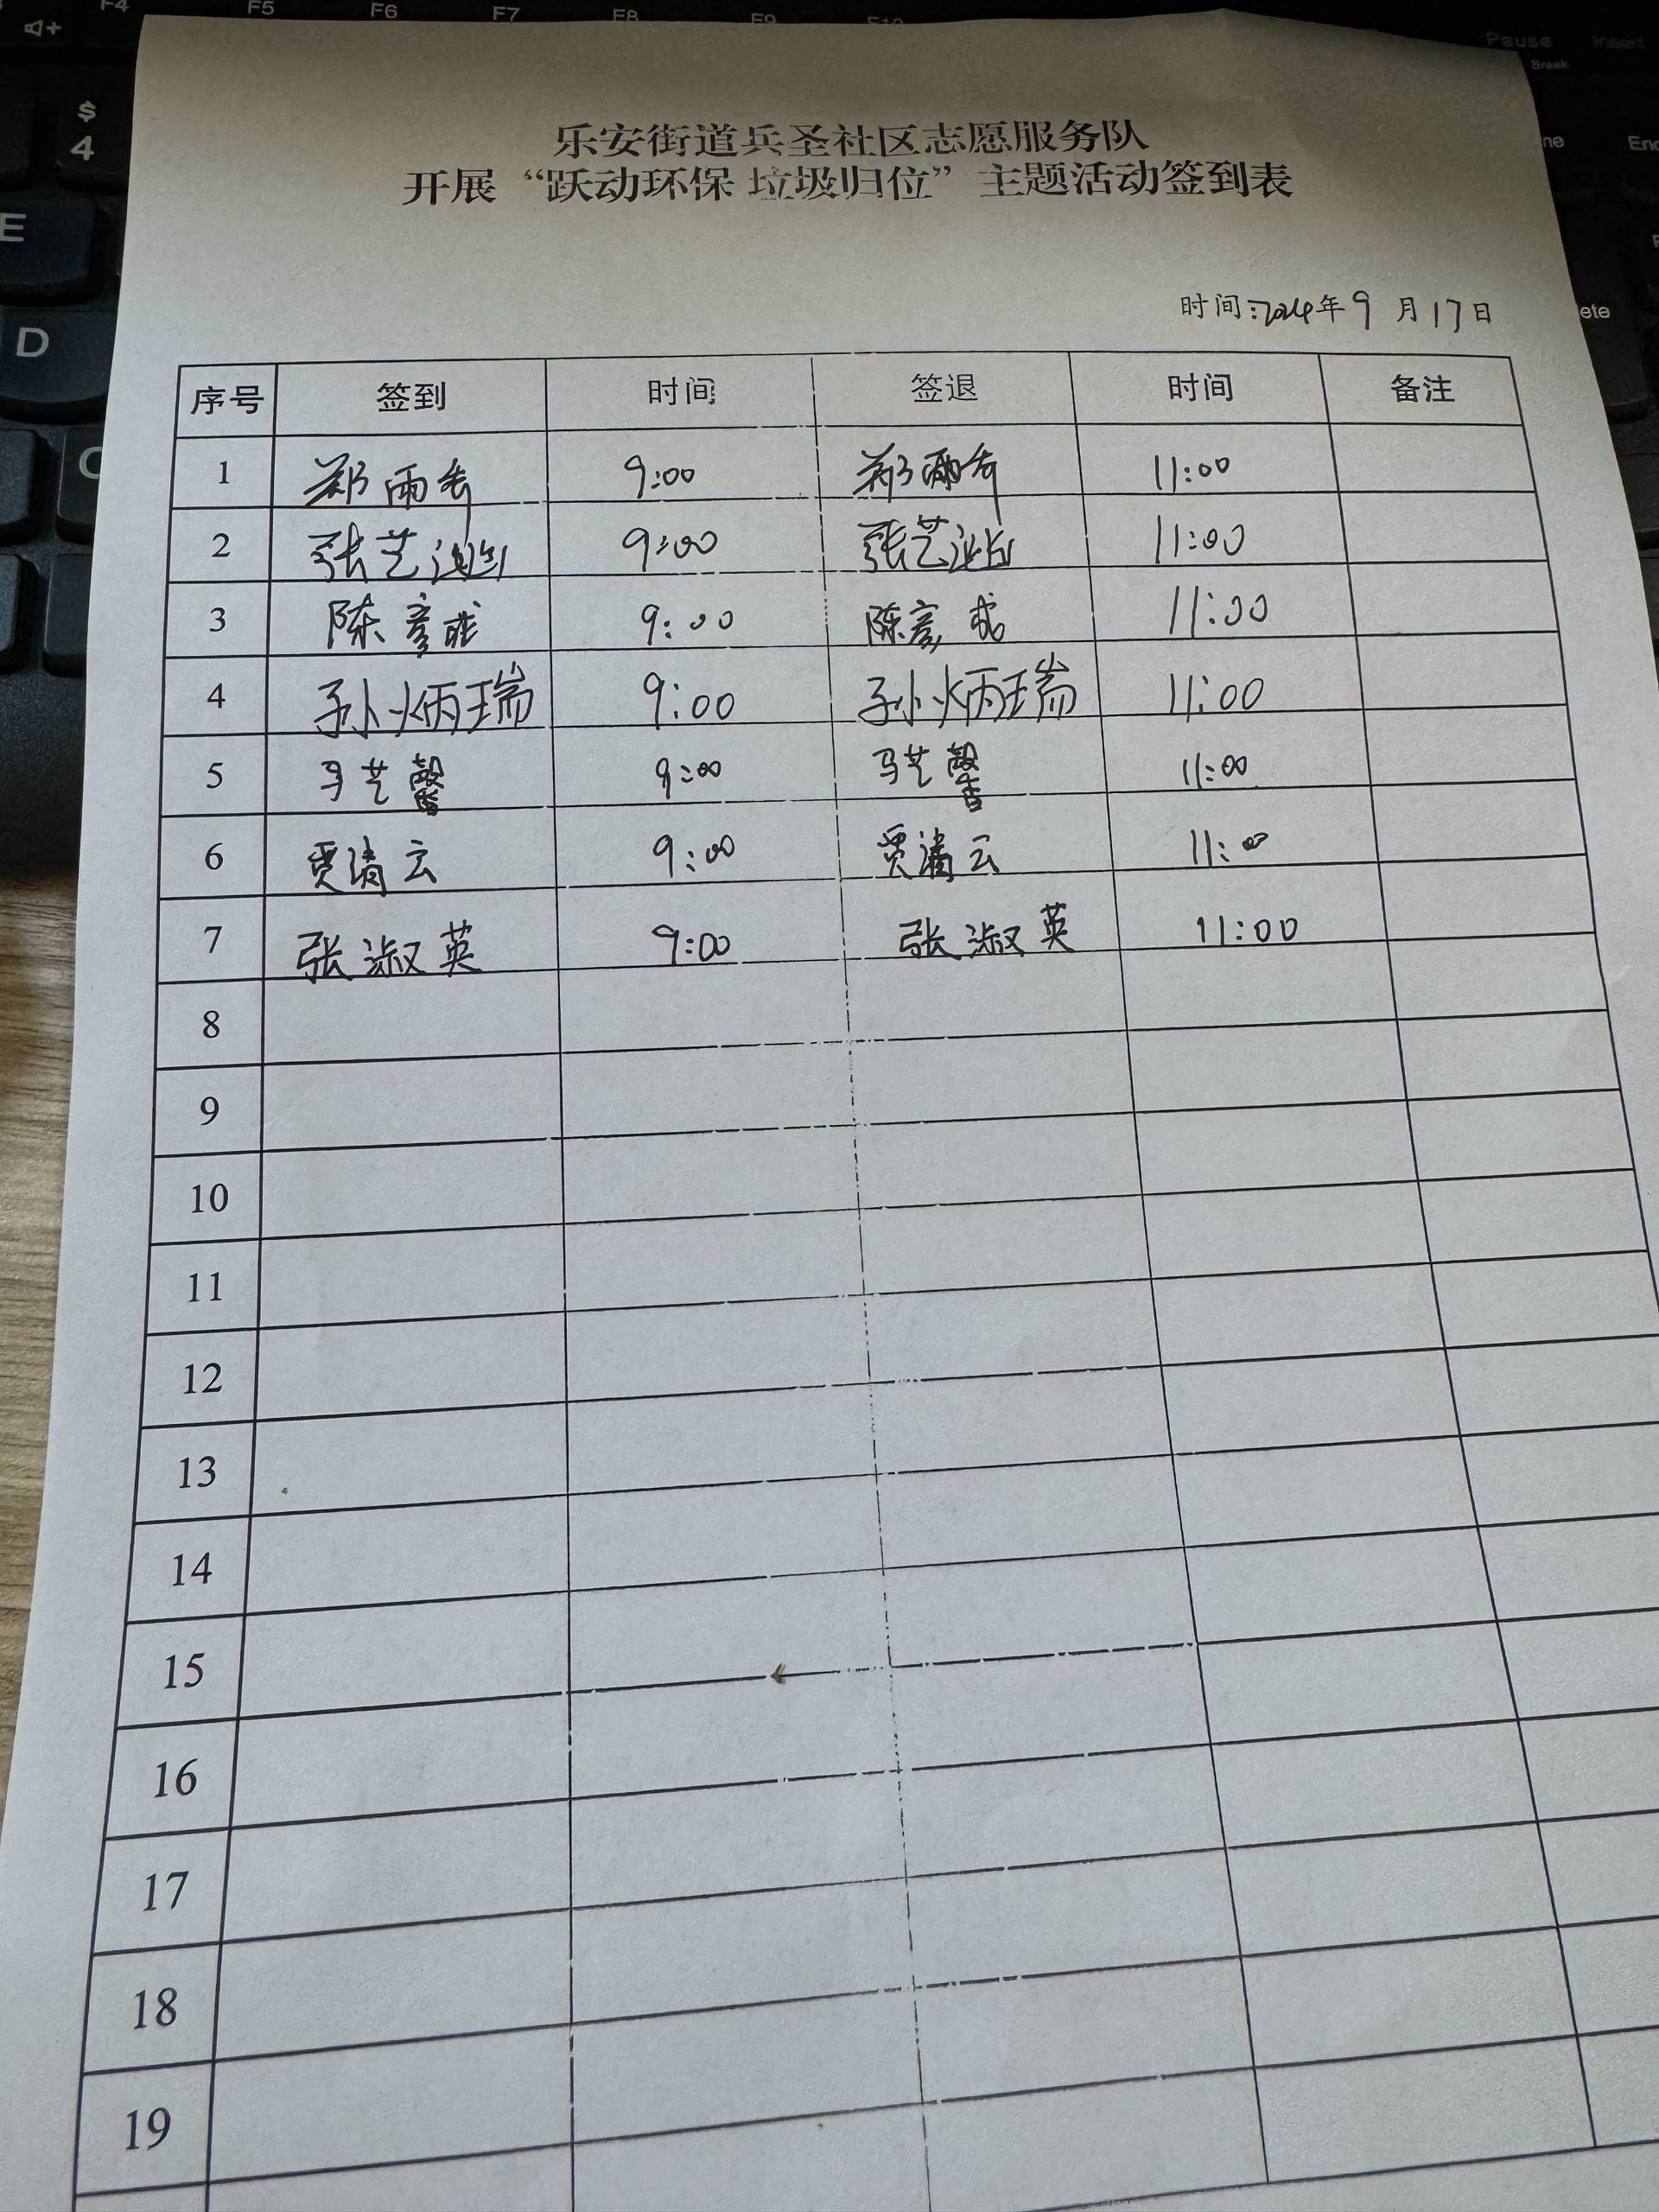 乐安街道兵圣社区志愿服务队
开展“跃动环保 垃圾归位”主题活动签到表
时间:2024年9月17日
序号 签到 时间 签退 时间 备注
1 郑雨 9:00 郑雨 11:00
2 张艺 9:00 张艺 11:00
3 陈彦 9:00 陈彦 11:00
4 孙炳瑞 9:00 孙炳瑞 11:00
5 马艺馨 9:00 马艺馨 11:00
6 贾清云 9:00 贾清云 11:00
7 张淑英 9:00 张淑英 11:00
8
9
10
11
12
13
14
15
16
17
18
19
$
4
E
D
C
F4 F5 F6 F7 F8 F9 F10
Pause
Break
Insert